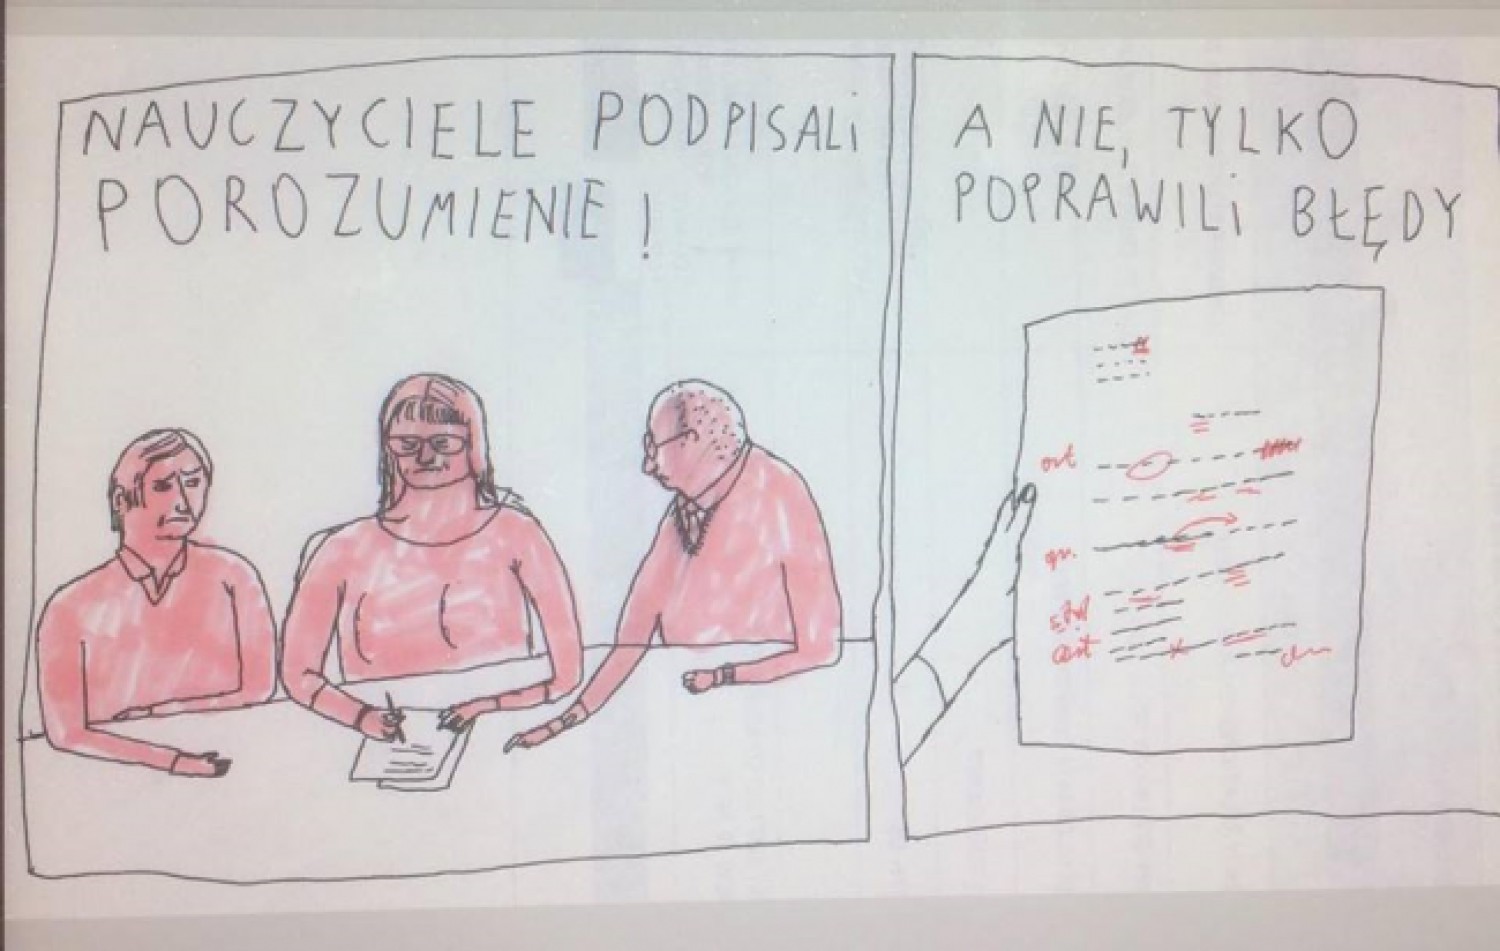 NAUCZYCIELE PODPISALI
POROZUMIENIE!
A NIE, TYLKO
POPRAWILI BŁĘDY
ort